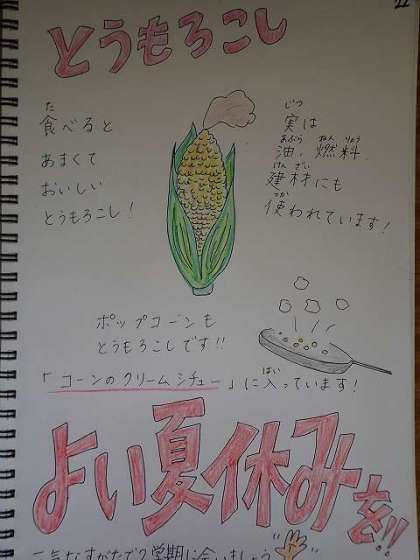 とうもろこし
食べると
あまくて
おいしい
とうもろこし!
実は
油、燃料、
建材にも
使われています!
ポップコーンも
とうもろこしです!!
「コーンのクリームシチュー」に入っています!
よい夏休みを!!
元気なすがたで2学期に会いましょう